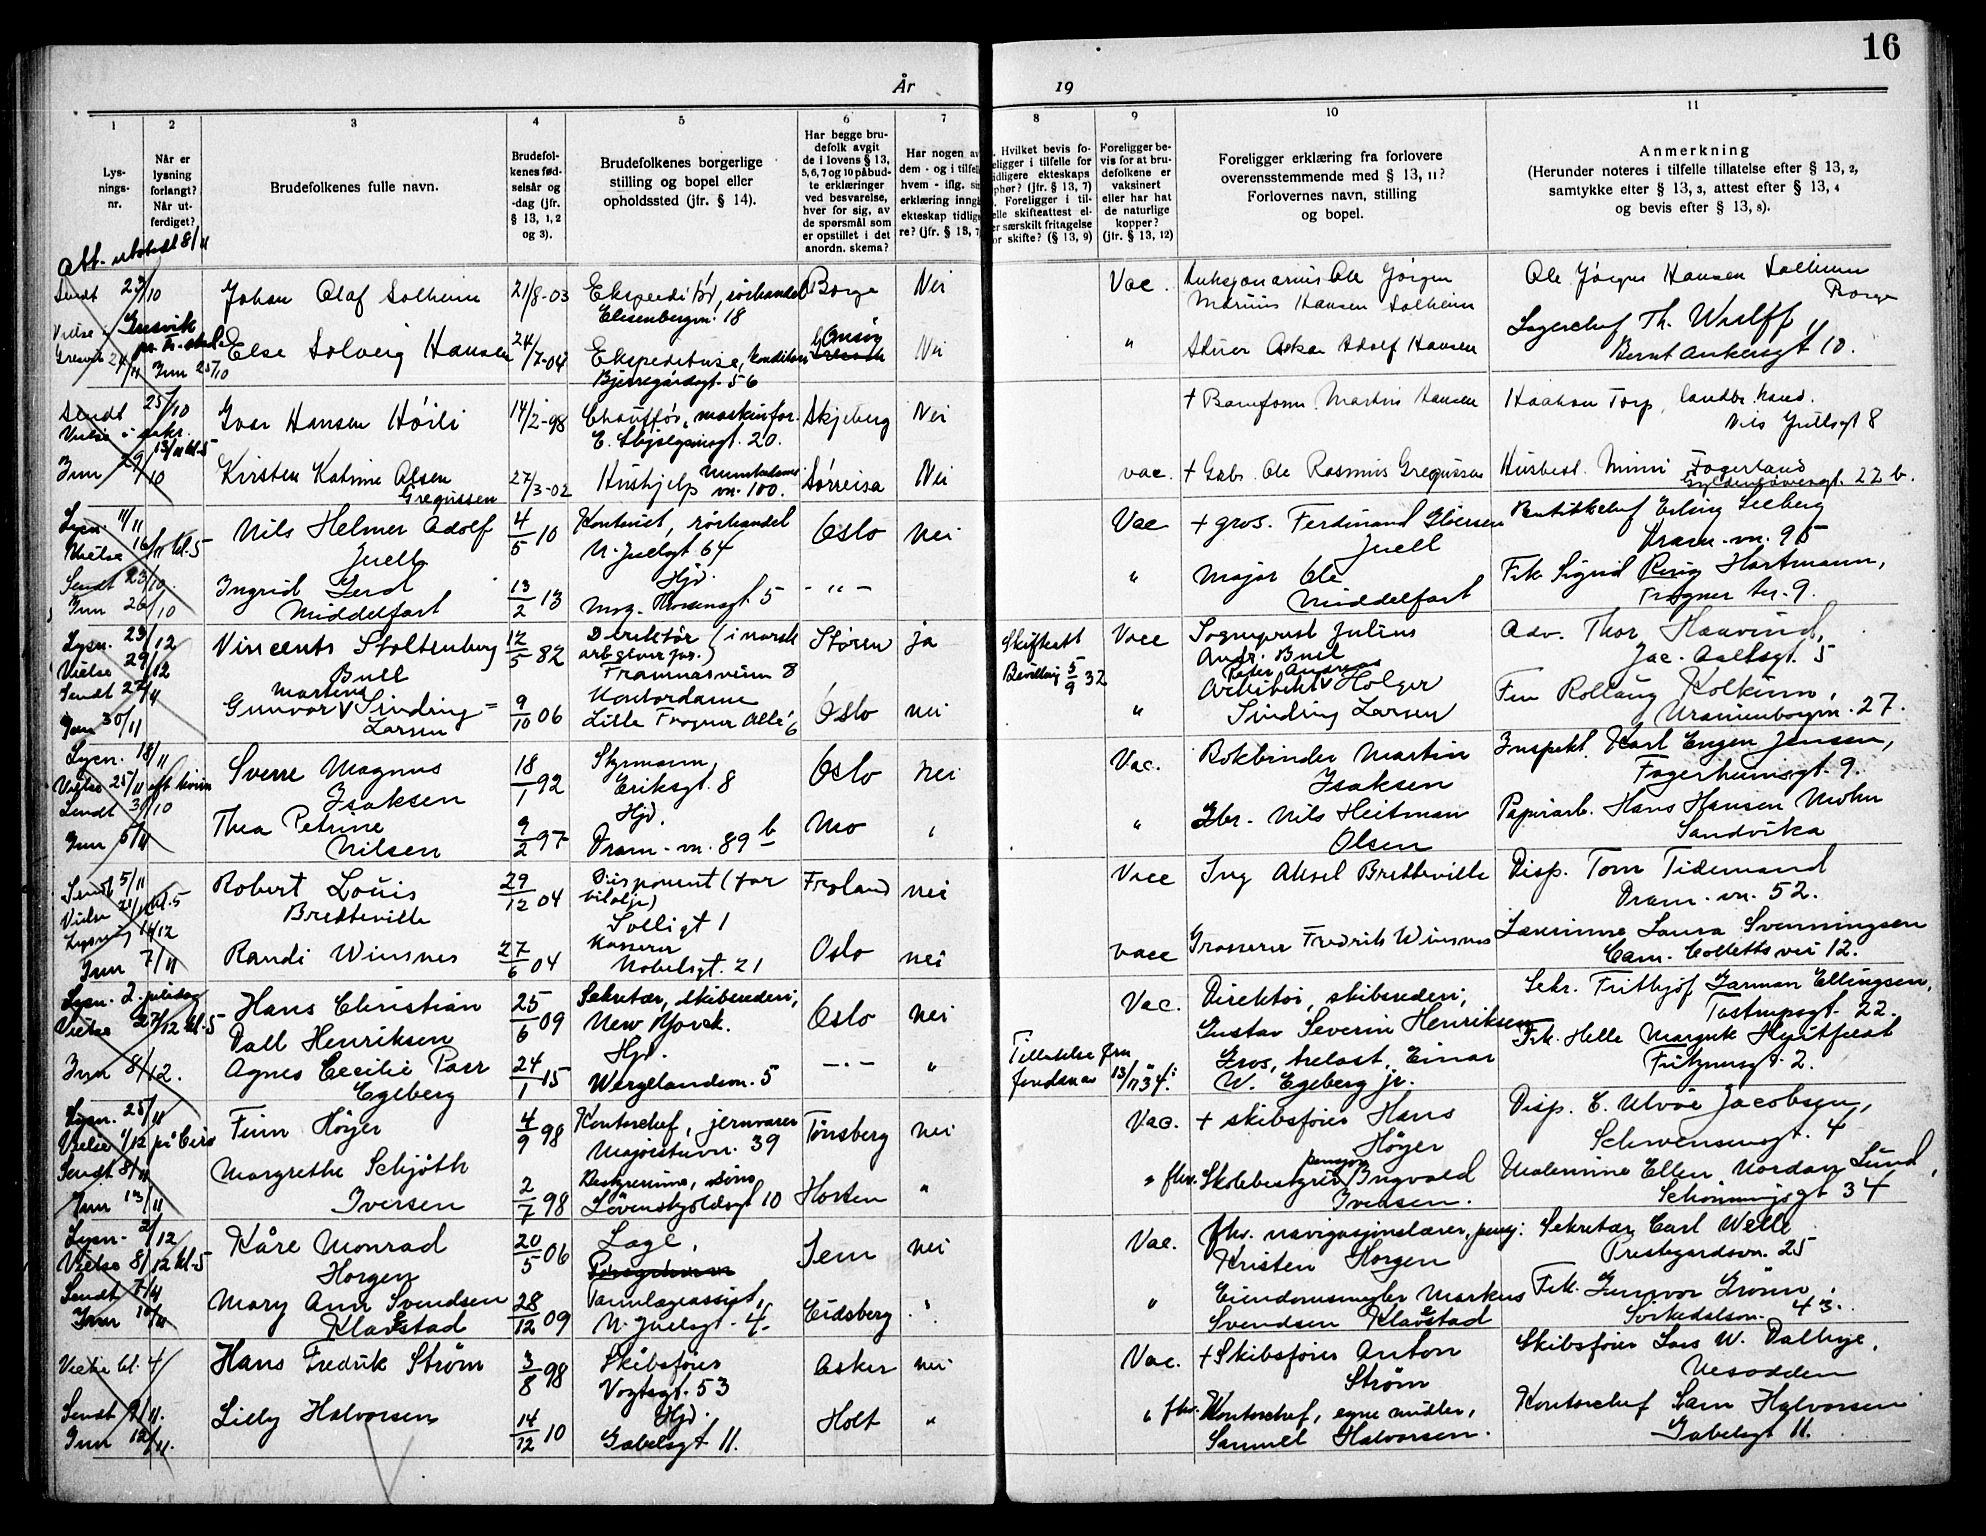 16
År 19
1
2
3
4
5
6
7
8
9
10
11
Lys-
nings-
nr.
Når er
lysning
forlangt?
Når ut-
ferdiget?
Brudefolkenes fulle navn.
Brudefol-
kenes fød-
selsår og
-dag (jfr.
§ 13, 1, 2
og 3).
Brudefolkenes borgerlige
stilling og bopel eller
opholdssted (jfr. § 14).
Har begge bru-
defolk avgit
de i lovens § 13,
5, 6, 7 og 10 påbud-
te erklæringer
ved besvarelse,
hver for sig, av
de spørsmål som
er opstillet i det
anordn. skema?
Har nogen av
dem - og i tilfelle
hvem - iflg. sin
erklæring inngå
ekteskap tidlige
re? (jfr. § 13, 7
Hvilket bevis fo-
eligger i tilfelle for
idligere ekteskaps
phør? (jfr. § 13, 7)
Foreligger i til-
elle skifteattest el-
er særskilt fritagelse
or skifte? (§ 13, 9)
Foreligger be-
vis for at bru-
defolkene er
vaksinert
eller har hat
de naturlige
kopper?
(jfr. § 13, 12)
Foreligger erklæring fra forlovere
overensstemmende med § 13, 11?
Forlovernes navn, stilling
og bopel.
Anmerkning
(Herunder noteres i tilfelle tillatelse efter § 13, 2,
samtykke efter § 13, 3, attest efter § 13, 4
og bevis efter § 13, 8).
Att. utstedt 8/11
Sendt 23/10
Johan Olaf Solheim 21/8-03 Ekspeditør, rørhandel Borge Nei Vac.
Elisenbergvn. 18
Ole Jörgen
Marius Hansen Solheim
Ole Jörgen Hansen Solheim
Borge
Vielse i Gresvik
Else Solveig Hansen 24/7-04 Ekspeditrise, konditori Onsöy Nei "
Bjerregårdsgt. 56
Inn 25/10
Oskar Adolf Hansen
Lagerchef Th. Wulff,
Bernt Ankersgt 10.
Sendt 25/10
Ivar Hansen Höili 14/2-98 Chauffør, maskinfor. Skjeberg Nei
20.
+ Martin Hansen
Haakon Torp, landbr. kand.
Nils Juelsgt 8
13/11 kl. 5
Inn 29/10
Kirsten Katrine Olsen
Gregussen
27/3-02 Hushjelp
vn. 100. Sørreisa Nei vac.
+ Gbr. Ole Rasmus Gregussen
Husbest. Mimi Fagerland
Gyldenløvesgt. 22 b.
Lysn. 11/11
Vielse 16/11 kl. 5
Nils Helmer Adolf
Juell
4/5 10 Kontorist, rørhandel
N. Juelsgt 64
Oslo nei Vac
+ gros. Ferdinand Ibersen
Juell
Butikkchef Erling Seeberg
Dram. vn. 95
Sendt 23/10.
Inn 26/10
Ingrid Gerd
Middelfart
13/2 13 Hjd.
Mog. Thorsensgt. 5
- " - "
Major Ole
Middelfart
Frk Sigrid Hartmann,
Frogner ter. 9.
Lysn. 23/12
Vielse 29/12
Vincents Stoltenberg
Bull
12/5 82 Direktör (i norsk
arbgiverfor.)
Framnæsveien 8
Stören ja
Skifteatt
Bevilling 5/9 32
Vacc
Sogneprest Julius
Andr. Bull
Adv. Thor Haavind,
Jac. Aallsgt. 5
Sendt 27/11
Inn 30/11
Gunvor Martine Sinding=
Larsen
9/10 06 Kontordame
Lille Frogner Allé 6
Oslo nei "
Arkitekt Peter Andreas Holger
Sinding Larsen
Fru Kolkinn,
Uranienborgvn. 27.
Lysn. 18/11
Vielse 25/11
Sverre Magnus
Isaksen
18/1 92 Styrmann,
Eriksgt. 8
Oslo nei Vac.
Bokbinder Martin
Isaksen
Inspekt. Karl Engen Jensen,
Fagerheimsgt. 9.
Sendt 31/10
Inn 5/11
Thea Petrine
Nilsen
9/2 97 Hjd.
Dram. vn. 89 b
Mo " "
Gbr. Nils Heitman
Olsen
Papirarb. Hans Hansen Mohn
Sandvika
Sendt 5/11
Robert Louis
Bredteville
29/12 04 Disponent (for
bilolje)
Solligt 1
Froland nei Vacc
Ing Aksel Bretteville
Disp. Tom Tidemand
Dram. vn. 52.
Inn 7/11
Randi Winsnes 27/6 04 Kasserer
Nobelsgt. 21
Oslo nei vacc
Grosserer Fredrik Winsnes
Lærerinne Laura Svenningsen
Cam. Colletts vei 12.
Lysn. 2. juledag
Vielse 27/12 kl. 5
Hans Christian
Dall Henriksen
25/6 09 Sekretær, skibsrederi,
New York.
Oslo nei Vac.
Direktör, skibsrederi,
Gustav Severin Henriksen
Sekr. Frithjof Garman Ellingsen,
Tostrupsgt. 22.
Inn 8/12.
Agnes Cecilie Parr
Egeberg
24/1 15 Hjd.
Wergelandsvn. 5
- " - "
Tillatelse fra
13/11 34.
Gros., trelast, Einar
W. Egeberg jr.
Frk. Helle Margrete Huitfeldt
Fritznersgt. 2.
Lysn. 25/11
Vielse 1/12 på
Finn Höyer 4/9 98 Kontorchef, jernvarer
Majorstuvn. 39
Tönsberg nei Vac.
+ skibsförer Hans
Höyer
Disp. C. Ulvöe Jacobsen,
Schwensensgt. 4
Sendt 8/11
Inn 13/11
Margrethe Schjöth
Iversen
2/7 98 Bestyrerinne,
Lövenskjoldsgt 10
Horten " "
fhv. Skolebestyrer pensjon Ingvald
Iversen.
Malerinne Ellen Nordan Lund,
Schönningsgt 34
Lysn. 2/12
Vielse 8/12 kl. 5
Kåre Monrad
Horgen
20/5 06 Lage,
Sem nei Vac.
fhv. navigasjonslærer, pensj:
Kristen Horgen
Sekretær Carl Welle
Prestegardsvn. 25
Sendt 7/11
Inn 10/11
Mary Ann Svendsen
Klavestad
28/12 09 Tannlægeassist,
N. Juelsgt. 4.
Eidsberg " "
Eiendomsmegler Markus
Svendsen Klavestad
Frk. Gunvor Grönn,
Sörkedalsvn. 43.
Vielse kl. 4
Hans Fredrik Ström 3/8 98 Skibsförer
Vogtsgt. 53
Asker nei Vac.
+ Skibsförer Anton
Ström
Skibsförer Lars W. Dalhye,
Nesodden
Sendt 9/11.
Inn 12/11.
Lilly Halvorsen 14/12 10 Hjd.
Gabelsgt 11.
Holt " "
fhv. Kontorchef, egne midler,
Samuel Halvorsen.
Kontorchef Sam Halvorsen
Gabelsgt 11.